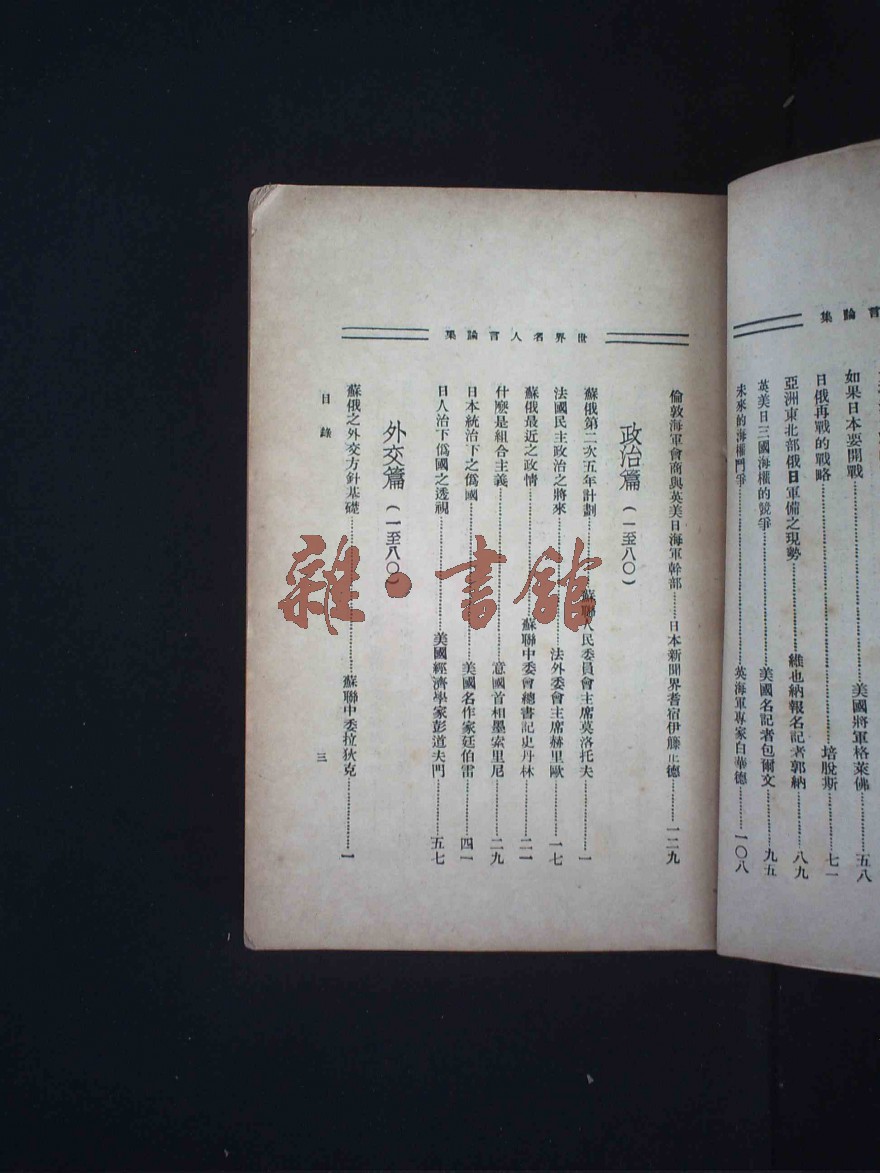 言論集
如果日本要開戰……美國將軍格萊佛……五八
日俄再戰的戰略……培脫斯……七一
亞洲東北部俄日軍備之現勢……維也納報名記者郭納……八九
英美日三國海權的競爭……美國名記者包爾文……九五
未來的海權鬥爭……英海軍專家白華德……一〇八
世界名人言論集
倫敦海軍會商與英美日海軍幹部……日本新聞界耆宿伊藤正德……一二九
政治篇（一至八〇）
蘇俄第二次五年計劃……蘇聯人民委員會主席莫洛托夫……一
法國民主政治之將來……法外委會主席赫里歐……一七
蘇俄最近之政情……蘇聯中委會總書記史丹林……二一
什麼是組合主義……意國首相墨索里尼……二九
日本統治下之僞國……美國名作家廷伯雷……四一
日人治下僞國之透視……美國經濟學家彭道夫門……五七
外交篇（一至八〇）
蘇俄之外交方針基礎……蘇聯中委拉狄克……一
目錄
三
雜·書館